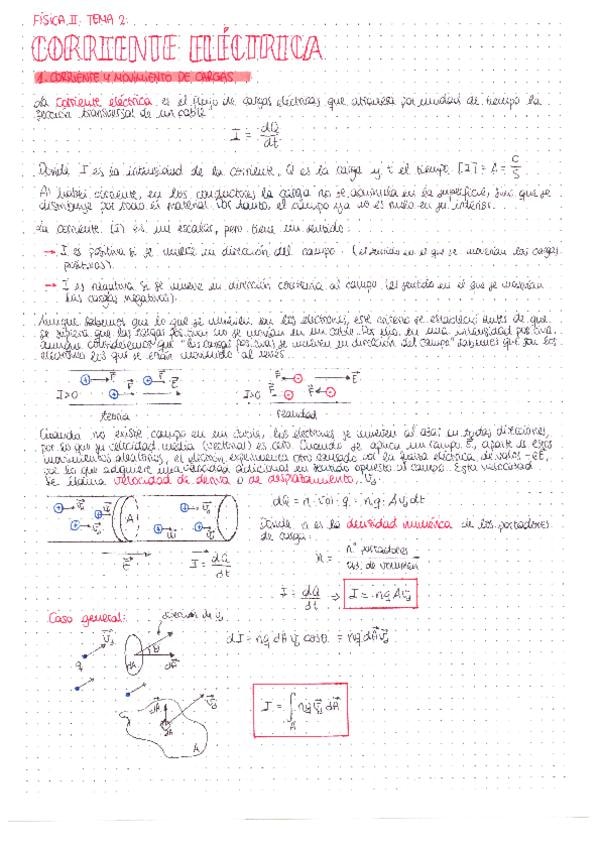 FÍSICA II: TEMA 2:
CORRIENTE ELÉCTRICA
1. CORRIENTE Y MOVIMIENTO DE CARGAS
La corriente eléctrica es el flujo de cargas eléctricas que atraviesa por unidad de tiempo la
sección transversal de un cable
I = dQ/dt
Donde I es la intensidad de la corriente, Q es la carga y t el tiempo. [I] = A = C/S
Al haber corriente, en los conductores la carga no se acumula en la superficie, sino que se
distribuye por todo el material. Por tanto, el campo ya no es nulo en su interior.
La corriente (I) es un escalar, pero tiene un sentido:
→ I es positiva si se mueve en dirección del campo. (el sentido en el que se moverían las cargas
positivas).
→ I es negativa si se mueve en dirección contraria al campo (el sentido en el que se moverían
las cargas negativas).
Aunque sabemos que lo que se mueven son los electrones, este criterio se estableció antes de que
se supiera que las cargas positivas no se movían en un cable. Por eso, en una intensidad positiva,
aunque consideremos que "las cargas positivas se mueven en dirección del campo" sabemos que son los
electrones los que se están moviendo al revés.
I>0 F F E
I>0 F F E
teoría realidad
Cuando no existe campo en un cable, los electrones se mueven al azar en todas direcciones,
por lo que su velocidad media (vectorial) es cero. Cuando se aplica un campo E, aparte de esos
movimientos aleatorios, el electrón experimenta otro causado por la fuerza eléctrica de valor -eE,
por lo que adquiere una velocidad adicional en sentido opuesto al campo. Esta velocidad
se llama velocidad de deriva o de desplazamiento, Vd.
dQ = n · Vol · q = nq · A Vd dt
Donde n es la densidad numérica de los portadores
de carga:
n = nº portadores / Ud. de volumen
I = dQ/dt
I = dQ/dt ⇒ I = nq A Vd
Caso general: dirección de Vd
dI = nq dA Vd cosθ = nq dA Vd
q dA θ dA
I = ∫A nq Vd dA
dA Vd
A